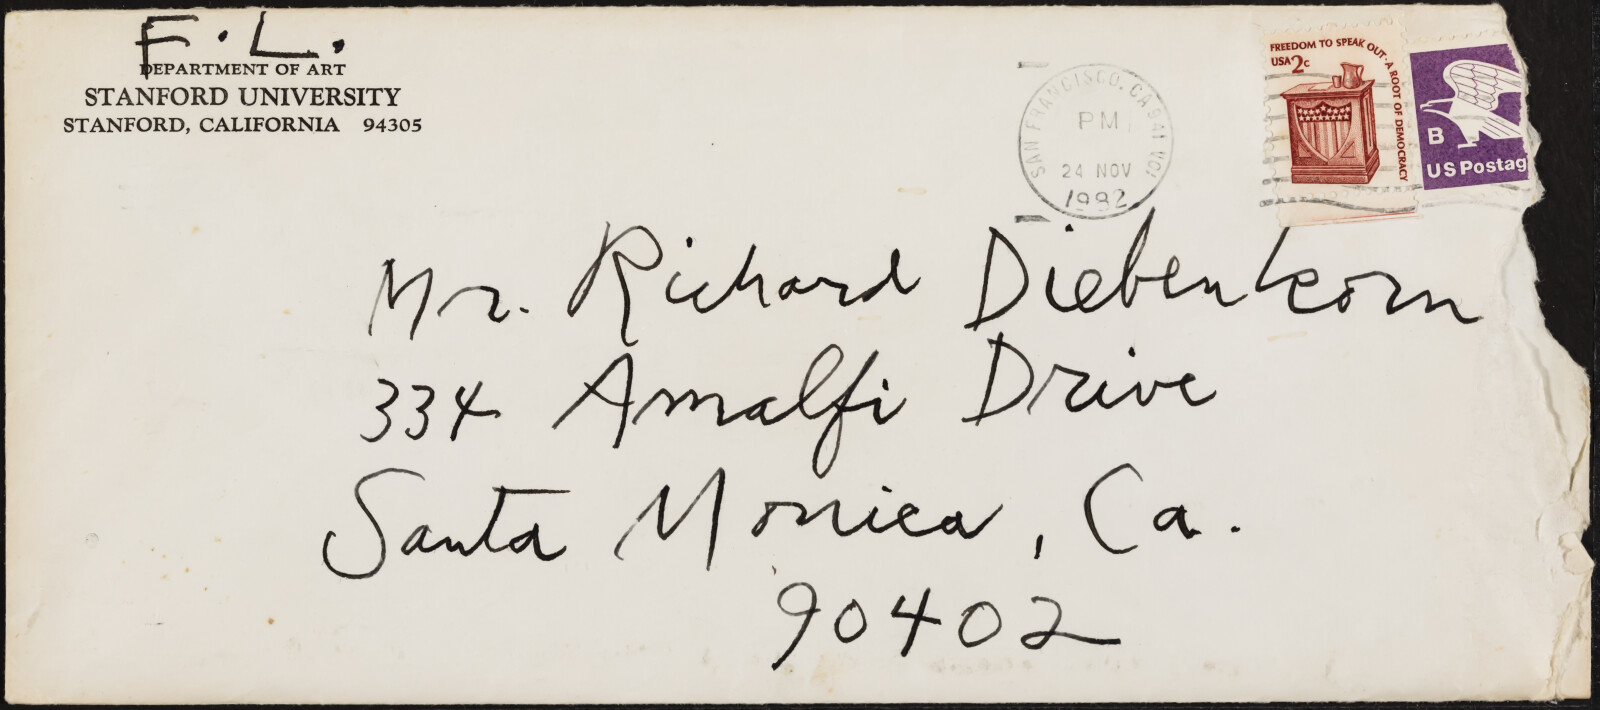 F. L.
DEPARTMENT OF ART
STANFORD UNIVERSITY
STANFORD, CALIFORNIA 94305
SAN FRANCISCO, CA 941
PM
24 NOV
1982
FREEDOM TO SPEAK OUT · A ROOT OF DEMOCRACY
USA 2c
B
US Postag
Mr. Richard Diebenkorn
334 Amalfi Drive
Santa Monica, Ca.
90402